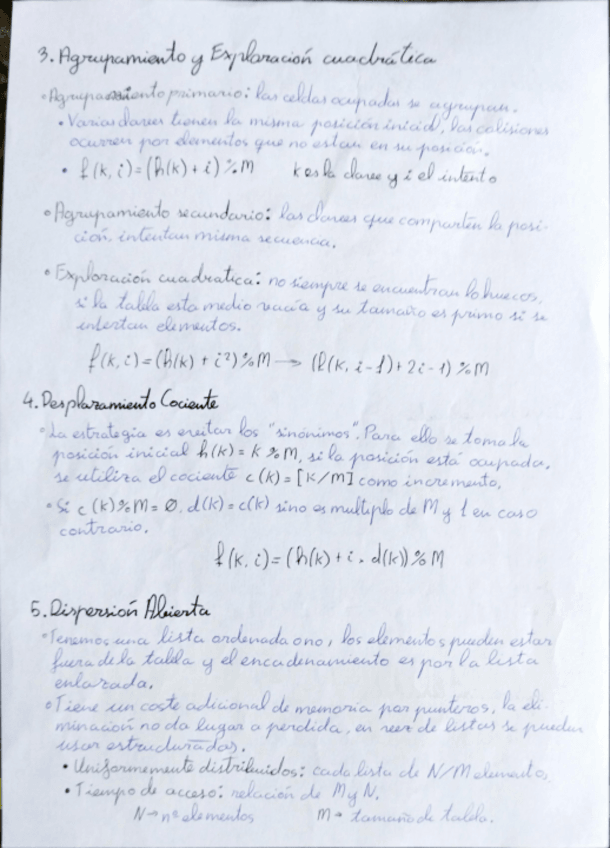 3. Agrupamiento y Exploración cuadrática
• Agrupamiento primario: las celdas ocupadas se agrupan.
• Varias claves tienen la misma posición inicial, las colisiones
ocurren por elementos que no estan en su posición.
• f(k,i)=(h(k)+i)%M k es la clave y i el intento
• Agrupamiento secundario: las claves que comparten la posi-
ción, intentan misma secuencia.
• Exploración cuadratica: no siempre se encuentran los huecos,
si la tabla esta medio vacía y su tamaño es primo si se
insertan elementos.
f(k,i)=(h(k)+i²)%M → (f(k,i-1)+2i-1)%M
4. Desplazamiento Cociente
• La estrategia es evitar los "sinónimos". Para ello se toma la
posición inicial h(k)=k%M, si la posición está ocupada,
se utiliza el cociente c(k)=[k/M] como incremento.
• Si c(k)%M=Ø, d(k)=c(k) sino es multiplo de M y 1 en caso
contrario.
f(k,i)=(h(k)+i.d(k))%M
5. Dispersión Abierta
• Tenemos una lista ordenada o no, los elementos pueden estar
fuera de la tabla y el encadenamiento es por la lista
enlazada.
• Tiene un coste adicional de memoria por punteros, la eli-
minación no da lugar a perdida, en vez de listas se pueden
usar estructuradas.
• Uniformemente distribuidos: cada lista de N/M elementos
• Tiempo de acceso: relación de M y N.
N→nº elementos M→ tamaño de tabla.